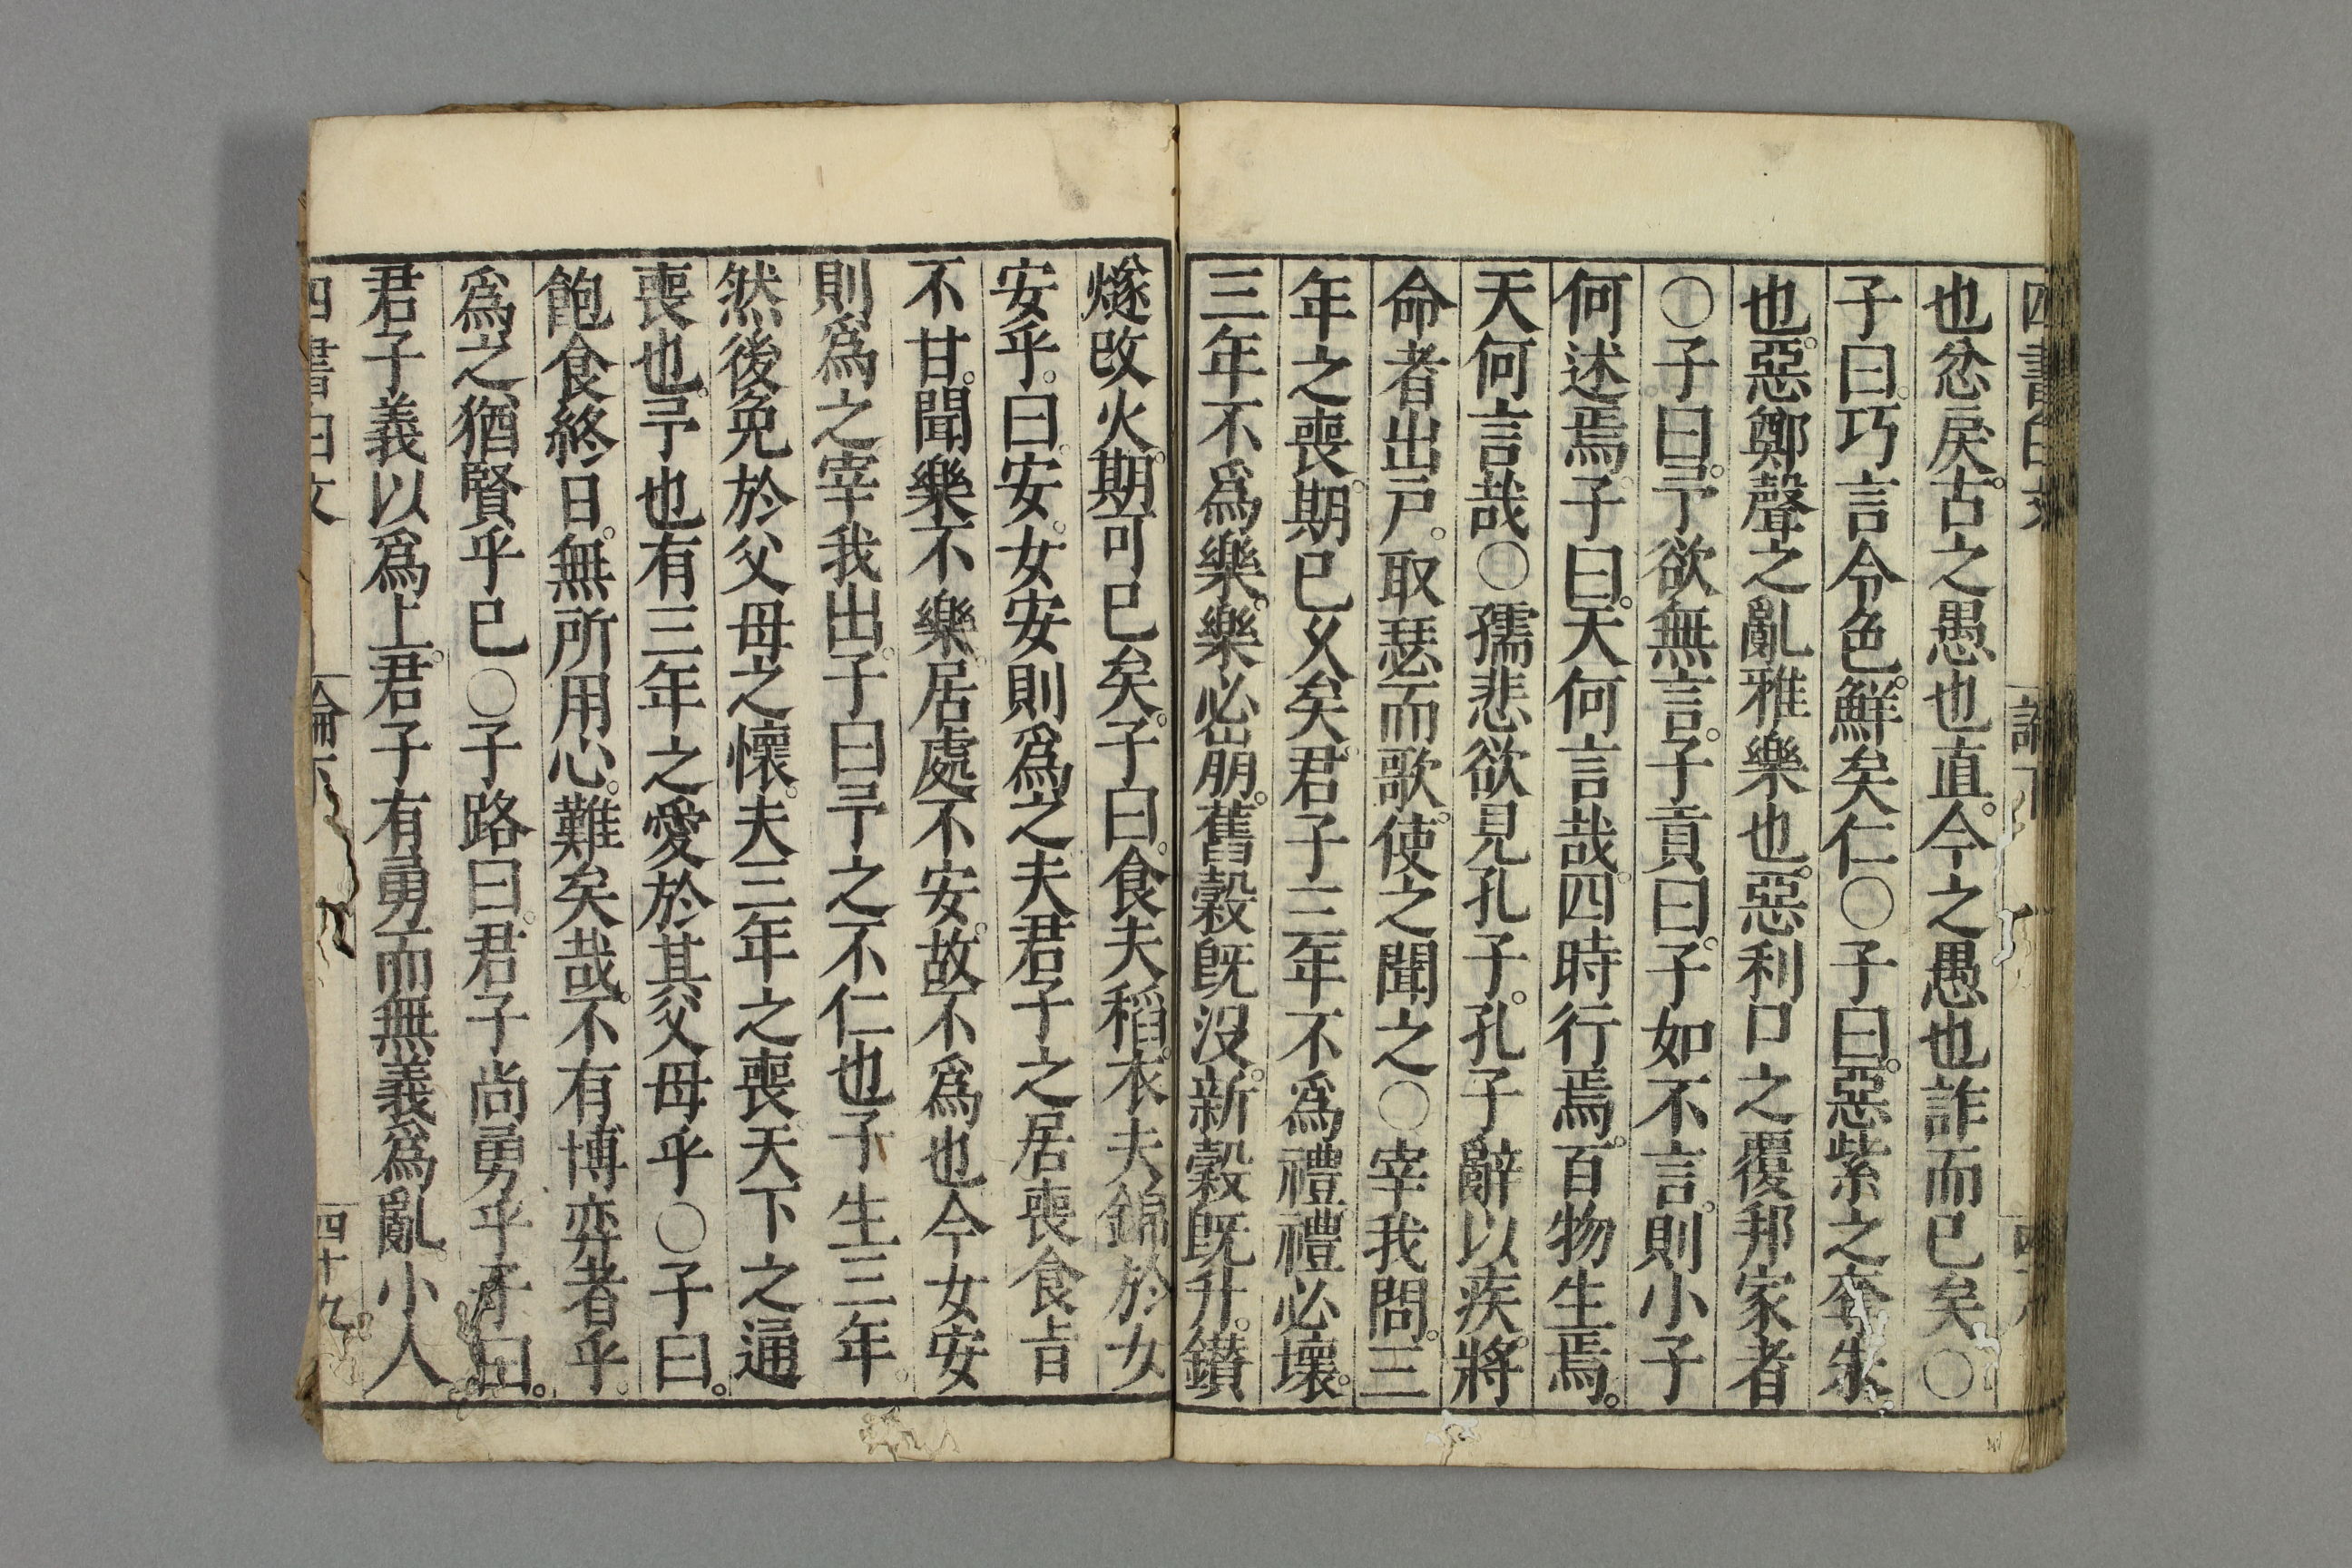 四書白文 論下
也忿戾。古之愚也直。今之愚也詐而已矣○
子曰。巧言令色。鮮矣仁○子曰。惡紫之奪朱
也。惡鄭聲之亂雅樂也。惡利口之覆邦家者
○子曰。予欲無言。子貢曰。子如不言。則小子
何述焉。子曰。天何言哉。四時行焉。百物生焉。
天何言哉○孺悲欲見孔子。孔子辭以疾。將
命者出戸。取瑟而歌。使之聞之○宰我問。三
年之喪。期已久矣。君子三年不爲禮禮必壞。
三年不爲樂。樂必崩。舊穀既沒。新穀既升。鑚
燧改火。期可已矣。子曰。食夫稻。衣夫錦於女
安乎。曰。安。女安則爲之夫君子之居喪食㫖
不甘。聞樂不樂。居處不安。故不爲也今女安
則爲之宰我出。子曰予之不仁也子生三年。
然後免於父母之懷。夫三年之喪天下之通
喪也。予也有三年之愛於其父母乎○子曰。
飽食終日。無所用心。難矣哉。不有博弈者乎。
爲之猶賢乎已○子路曰。君子尚勇乎子曰。
君子義以爲上。君子有勇而無義爲亂。小人
四書白文 論下 四十九